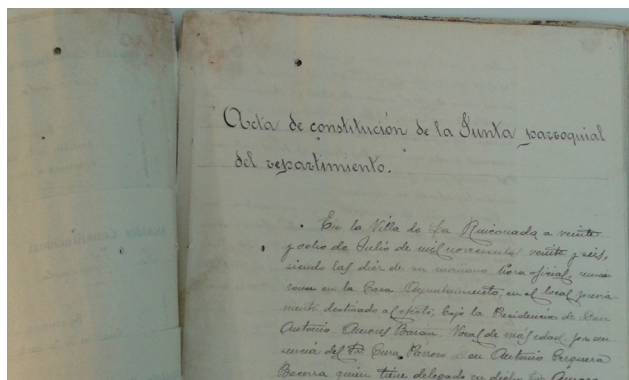 Acta de constitución de la Junta parroquial
del repartimiento.
En la Villa de La Rinconada a veinte
y ocho de Julio de mil novecientos veinte y seis,
siendo las diez de su mañana hora oficial,
en la Casa Ayuntamiento, en el local
destinado al efecto, bajo la Presidencia de Don
Antonio Vocal de más edad, por
del Sr. Cura Párroco Don Antonio
Becerra quien tiene delegado en dicho Sr.